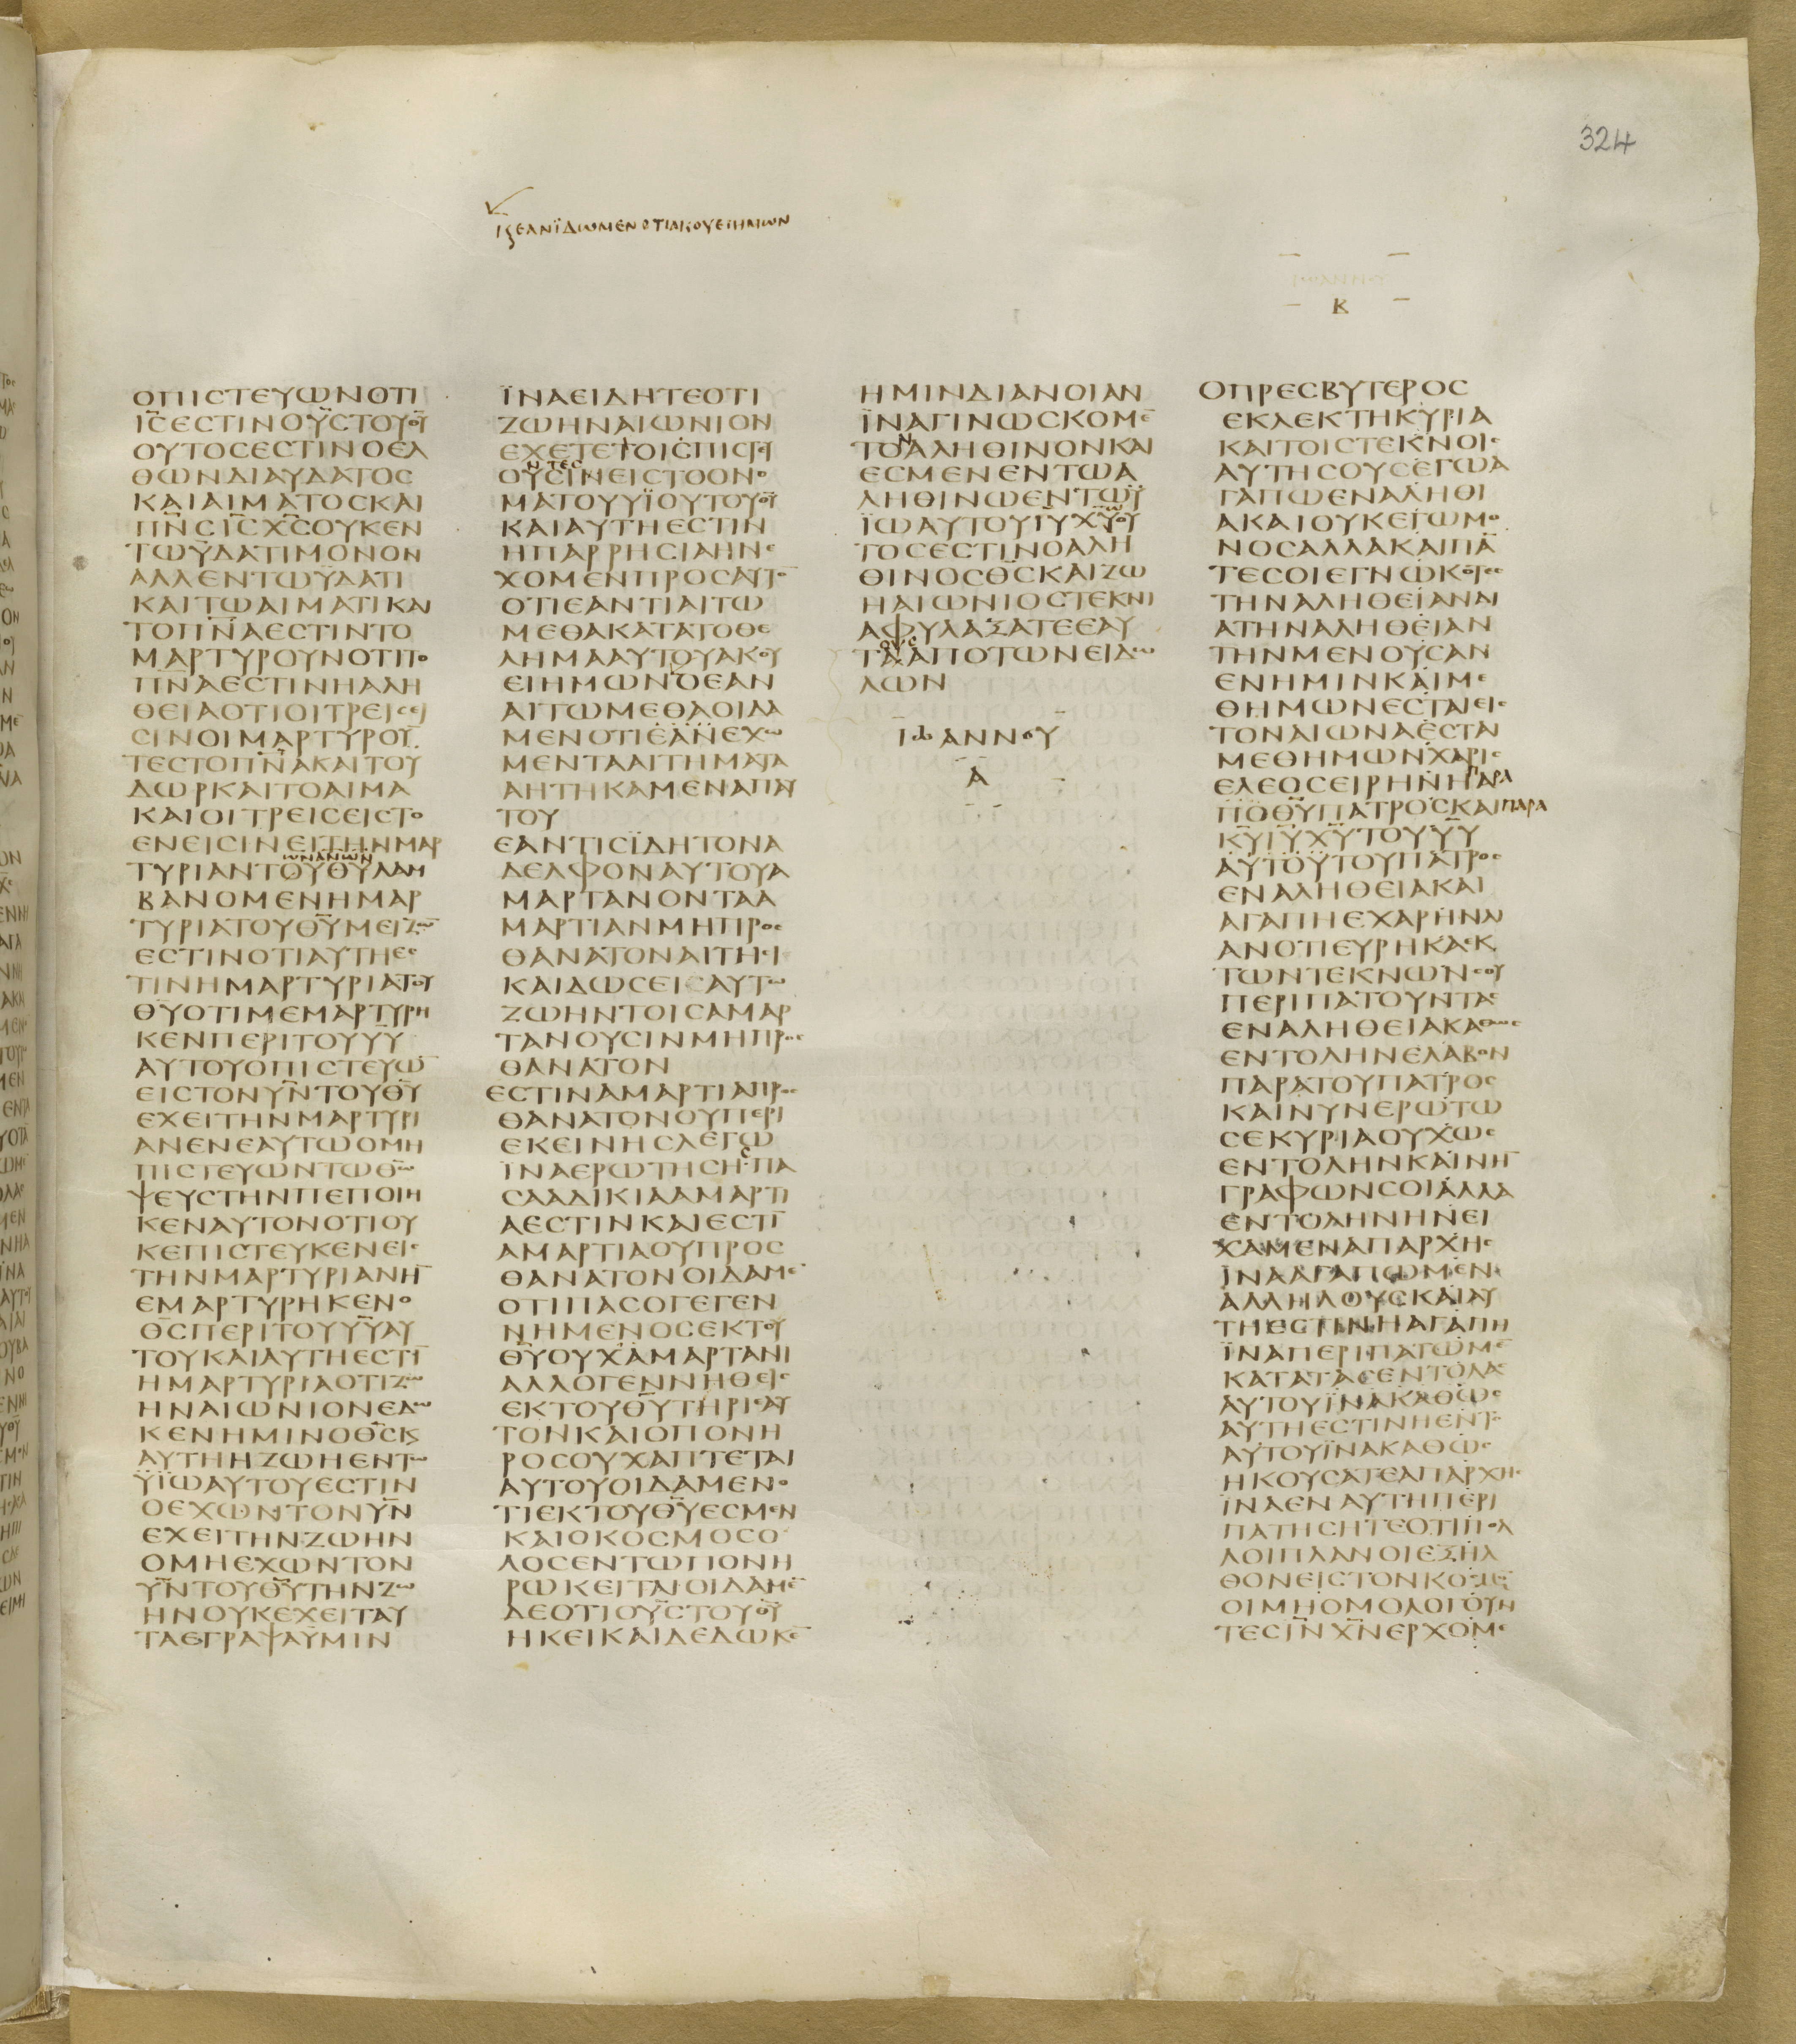 324
ΚΕΑΝΪΔΩΜΕΝΟΤΙΑΚΟΥΕΙΗΜΩΝ
Β
ΟΠΙΣΤΕΥΩΝΟΤΙ
ΙΣΕΣΤΙΝΟΥΣΤΟΥΘΥ
ΟΥΤΟΣΕΣΤΙΝΟΕΛ
ΘΩΝΔΙΑΥΔΑΤΟΣ
ΚΑΙΑΙΜΑΤΟΣΚΑΙ
ΠΝΣΙΣΧΣΟΥΚΕΝ
ΤΩΥΔΑΤΙΜΟΝΟΝ
ΑΛΛΕΝΤΩΥΔΑΤΙ
ΚΑΙΤΩΑΙΜΑΤΙΚΑΙ
ΤΟΠΝΑΕΣΤΙΝΤΟ
ΜΑΡΤΥΡΟΥΝΟΤΙΤΟ
ΠΝΑΕΣΤΙΝΗΑΛΗ
ΘΕΙΑΟΤΙΟΙΤΡΕΙΣΕΙ
ΣΙΝΟΙΜΑΡΤΥΡΟΥ
ΤΕΣΤΟΠΝΑΚΑΙΤΟΥ
ΔΩΡΚΑΙΤΟΑΙΜΑ
ΚΑΙΟΙΤΡΕΙΣΕΙΣΤΟ
ΕΝΕΙΣΙΝΕΙΤΗΝΜΑΡ
ΤΥΡΙΑΝΤΟΥΘΥΛΑΜ
ΒΑΝΟΜΕΝΗΜΑΡ
ΤΥΡΙΑΤΟΥΘΥΜΕΙΖΩ
ΕΣΤΙΝΟΤΙΑΥΤΗΕΣ
ΤΙΝΗΜΑΡΤΥΡΙΑΤΟΥ
ΘΥΟΤΙΜΕΜΑΡΤΥΡΗ
ΚΕΝΠΕΡΙΤΟΥΥΥ
ΑΥΤΟΥΟΠΙΣΤΕΥΩ
ΕΙΣΤΟΝΥΝΤΟΥΘΥ
ΕΧΕΙΤΗΝΜΑΡΤΥΡΙ
ΑΝΕΝΕΑΥΤΩΟΜΗ
ΠΙΣΤΕΥΩΝΤΩΘΩ
ΨΕΥΣΤΗΝΠΕΠΟΙΗ
ΚΕΝΑΥΤΟΝΟΤΙΟΥ
ΚΕΠΙΣΤΕΥΚΕΝΕΙΣ
ΤΗΝΜΑΡΤΥΡΙΑΝΗ
ΕΜΑΡΤΥΡΗΚΕΝΟ
ΘΣΠΕΡΙΤΟΥΥΥΑΥ
ΤΟΥΚΑΙΑΥΤΗΕΣΤΙ
ΗΜΑΡΤΥΡΙΑΟΤΙΖΩ
ΗΝΑΙΩΝΙΟΝΕΔΩ
ΚΕΝΗΜΙΝΟΘΣΚ
ΑΥΤΗΗΖΩΗΕΝΤΩ
ΥΪΩΑΥΤΟΥΕΣΤΙΝ
ΟΕΧΩΝΤΟΝΥΝ
ΕΧΕΙΤΗΝΖΩΗΝ
ΟΜΗΕΧΩΝΤΟΝ
ΥΝΤΟΥΘΥΤΗΝΖΩ
ΗΝΟΥΚΕΧΕΙΤΑΥ
ΤΑΕΓΡΑΨΑΥΜΙΝ
ΪΝΑΕΙΔΗΤΕΟΤΙ
ΖΩΗΝΑΙΩΝΙΟΝ
ΕΧΕΤΕΤΟΙΣΠΙΣΤΕΥ
ΟΥΣΙΝΕΙΣΤΟΟΝΟ
ΜΑΤΟΥΥΪΟΥΤΟΥΘΥ
ΚΑΙΑΥΤΗΕΣΤΙΝ
ΗΠΑΡΡΗΣΙΑΗΝΕ
ΧΟΜΕΝΠΡΟΣΑΥΤΟ
ΟΤΙΕΑΝΤΙΑΙΤΩ
ΜΕΘΑΚΑΤΑΤΟΘΕ
ΛΗΜΑΑΥΤΟΥΑΚΟΥ
ΕΙΗΜΩΝΟΕΑΝ
ΑΙΤΩΜΕΘΑΟΙΔΑ
ΜΕΝΟΤΙΕΑΝΕΧΩ
ΜΕΝΤΑΑΙΤΗΜΑΤΑ
ΑΗΤΗΚΑΜΕΝΑΠΑΥ
ΤΟΥ
ΕΑΝΤΙΣΪΔΗΤΟΝΑ
ΔΕΛΦΟΝΑΥΤΟΥΑ
ΜΑΡΤΑΝΟΝΤΑΑ
ΜΑΡΤΙΑΝΜΗΠΡΟΣ
ΘΑΝΑΤΟΝΑΙΤΗΣΙ
ΚΑΙΔΩΣΕΙΣΑΥΤΩ
ΖΩΗΝΤΟΙΣΑΜΑΡ
ΤΑΝΟΥΣΙΝΜΗΠΡΟΣ
ΘΑΝΑΤΟΝ
ΕΣΤΙΝΑΜΑΡΤΙΑΠΡΟΣ
ΘΑΝΑΤΟΝΟΥΠΕΡΙ
ΕΚΕΙΝΗΣΛΕΓΩ
ΪΝΑΕΡΩΤΗΣΗΠΑ
ΣΑΑΔΙΚΙΑΑΜΑΡΤΙ
ΑΕΣΤΙΝΚΑΙΕΣΤΙ
ΑΜΑΡΤΙΑΟΥΠΡΟΣ
ΘΑΝΑΤΟΝΟΙΔΑΜΕ
ΟΤΙΠΑΣΟΓΕΓΕΝ
ΝΗΜΕΝΟΣΕΚΤΟΥ
ΘΥΟΥΧΑΜΑΡΤΑΝΙ
ΑΛΛΟΓΕΝΝΗΘΕΙΣ
ΕΚΤΟΥΘΥΤΗΡΙΕΑΥ
ΤΟΝΚΑΙΟΠΟΝΗ
ΡΟΣΟΥΧΑΠΤΕΤΑΙ
ΑΥΤΟΥΟΙΔΑΜΕΝΟ
ΤΙΕΚΤΟΥΘΥΕΣΜΕΝ
ΚΑΙΟΚΟΣΜΟΣΟ
ΛΟΣΕΝΤΩΠΟΝΗ
ΡΩΚΕΙΤΑΙΟΙΔΑΜΕ
ΔΕΟΤΙΟΥΣΤΟΥΘΥ
ΗΚΕΙΚΑΙΔΕΔΩΚΕ
ΗΜΙΝΔΙΑΝΟΙΑΝ
ΪΝΑΓΙΝΩΣΚΟΜΕ
ΤΟΑΛΗΘΙΝΟΝΚΑΙ
ΕΣΜΕΝΕΝΤΩΑ
ΛΗΘΙΝΩΕΝΤΩΫ
ΪΩΑΥΤΟΥΙΥΧΥΟΥ
ΤΟΣΕΣΤΙΝΟΑΛΗ
ΘΙΝΟΣΘΣΚΑΙΖΩ
ΗΑΙΩΝΙΟΣΤΕΚΝΙ
ΑΦΥΛΑΞΑΤΕΕΑΥ
ΤΑΑΠΟΤΩΝΕΙΔΩ
ΛΩΝ
ΙΩΑΝΝΟΥ
Α
ΟΠΡΕΣΒΥΤΕΡΟΣ
ΕΚΛΕΚΤΗΚΥΡΙΑ
ΚΑΙΤΟΙΣΤΕΚΝΟΙΣ
ΑΥΤΗΣΟΥΣΕΓΩΑ
ΓΑΠΩΕΝΑΛΗΘΙ
ΑΚΑΙΟΥΚΕΓΩΜΟ
ΝΟΣΑΛΛΑΚΑΙΠΑ
ΤΕΣΟΙΕΓΝΩΚΟΤΕΣ
ΤΗΝΑΛΗΘΕΙΑΝΔΙ
ΑΤΗΝΑΛΗΘΕΙΑΝ
ΤΗΝΜΕΝΟΥΣΑΝ
ΕΝΗΜΙΝΚΑΙΜΕ
ΘΗΜΩΝΕΣΤΑΙΕΙΣ
ΤΟΝΑΙΩΝΑΕΣΤΑΙ
ΜΕΘΗΜΩΝΧΑΡΙΣ
ΕΛΕΟΣΕΙΡΗΝΗΠΑΡΑ
ΠΟΘΥΠΑΤΡΟΣΚΑΙΠΑΡΑ
ΚΥΙΥΧΥΤΟΥΥΥ
ΑΥΤΟΥΤΟΥΠΑΤΡΟΣ
ΕΝΑΛΗΘΕΙΑΚΑΙ
ΑΓΑΠΗΕΧΑΡΗΝΛΙ
ΑΝΟΤΙΕΥΡΗΚΑΕΚ
ΤΩΝΤΕΚΝΩΝΣΟΥ
ΠΕΡΙΠΑΤΟΥΝΤΑΣ
ΕΝΑΛΗΘΕΙΑΚΑΘΩΣ
ΕΝΤΟΛΗΝΕΛΑΒΟΝ
ΠΑΡΑΤΟΥΠΑΤΡΟΣ
ΚΑΙΝΥΝΕΡΩΤΩ
ΣΕΚΥΡΙΑΟΥΧΩΣ
ΕΝΤΟΛΗΝΚΑΙΝΗ
ΓΡΑΦΩΝΣΟΙΑΛΛΑ
ΕΝΤΟΛΗΝΗΝΕΙ
ΧΑΜΕΝΑΠΑΡΧΗΣ
ΪΝΑΑΓΑΠΩΜΕΝ
ΑΛΛΗΛΟΥΣΚΑΙΑΥ
ΤΗΕΣΤΙΝΗΑΓΑΠΗ
ΪΝΑΠΕΡΙΠΑΤΩΜΕ
ΚΑΤΑΤΑΣΕΝΤΟΛΑΣ
ΑΥΤΟΥΪΝΑΚΑΘΩΣ
ΑΥΤΗΕΣΤΙΝΗΕΝΤΟ
ΑΥΤΟΥΪΝΑΚΑΘΩΣ
ΗΚΟΥΣΑΤΕΑΠΑΡΧΗΣ
ΪΝΑΕΝΑΥΤΗΠΕΡΙ
ΠΑΤΗΣΗΤΕΟΤΙΠΟΛ
ΛΟΙΠΛΑΝΟΙΕΞΗΛ
ΘΟΝΕΙΣΤΟΝΚΟΣΜΟ
ΟΙΜΗΟΜΟΛΟΓΟΥΝ
ΤΕΣΙΝΧΝΕΡΧΟΜΕ